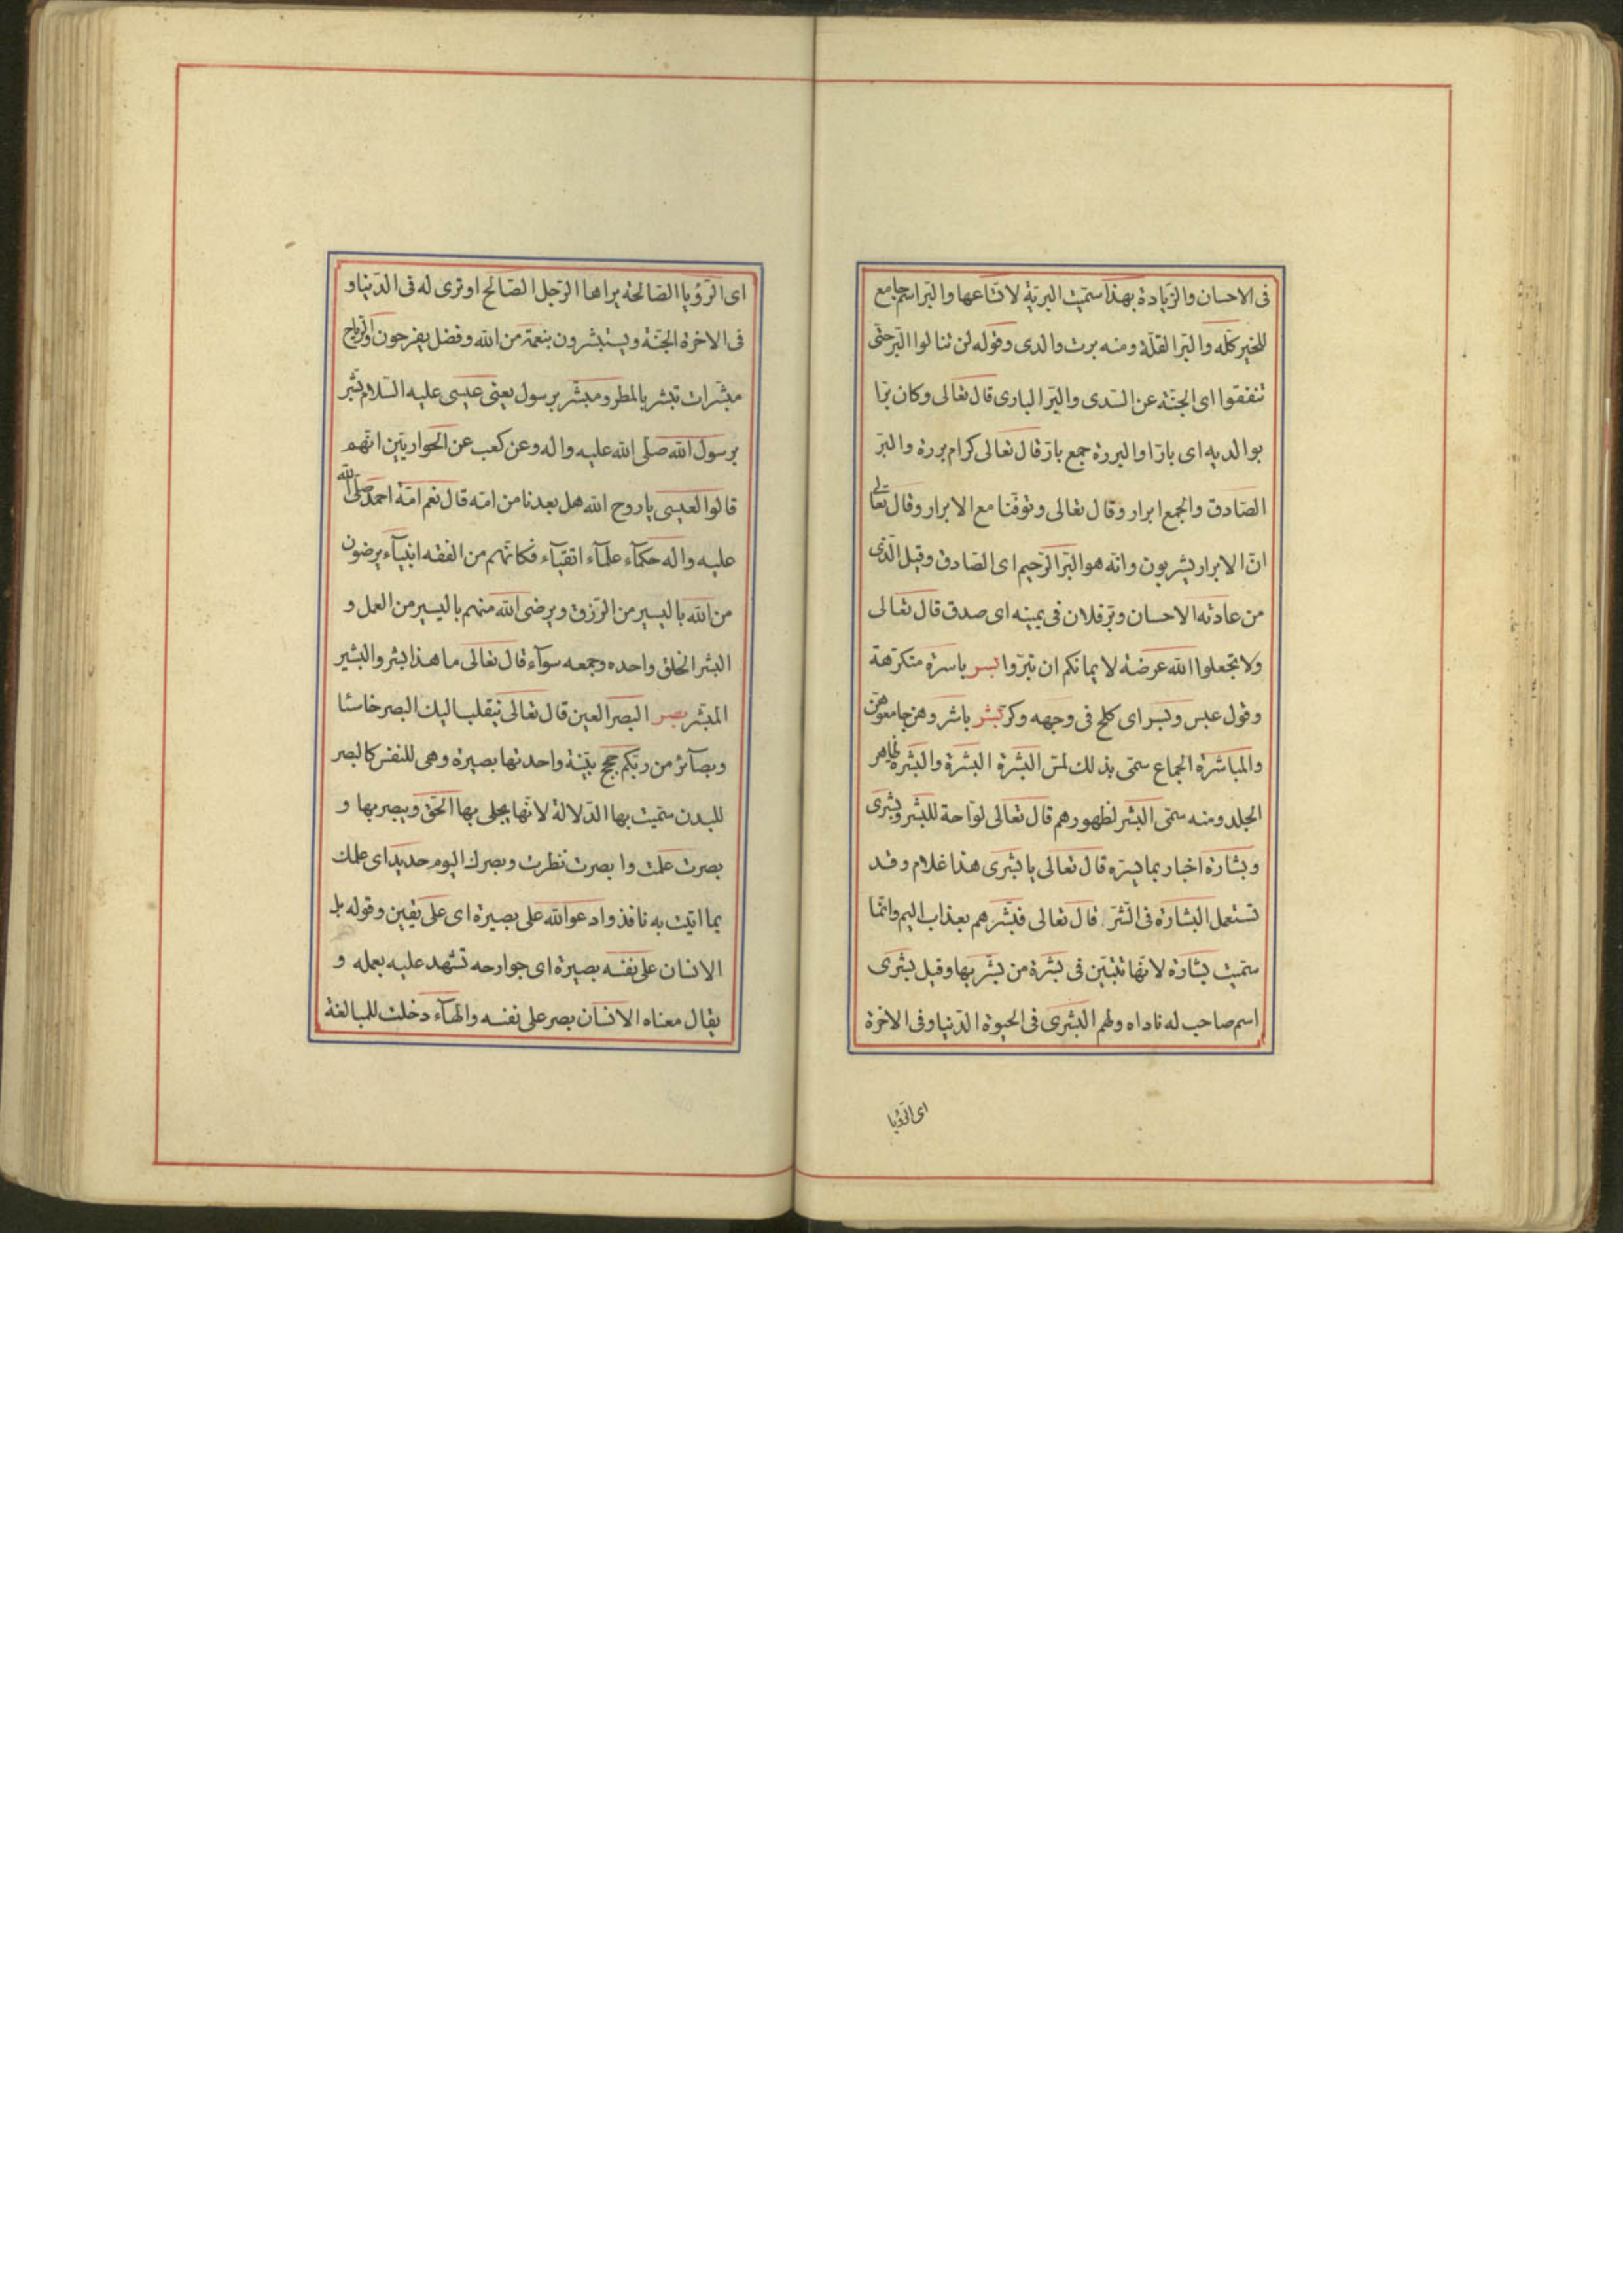 فى الاحسان والزّيادة بهذا سمّيت البريّة لاتّساعها والبرّ اسم جامع
للخير كلّه والبرّ القلّة ومنه بررت والدى وقوله لن تنالوا البرّ حتّى
تنفقوا اى الجنّة عن السّدى والبرّ البارى قال تعالى وكان برّا
بوالديه اى بارّا والبررة جمع بارّ قال تعالى كرام بررة والبرّ
الصّادق والجمع ابرار وقال تعالى وتوفّنا مع الابرار وقال تعالى
انّ الابرار يشربون وانّه هو البرّ الرّحيم اى الصّادق وقيل الّذى
من عادته الاحسان وبرّ فلان فى يمينه اى صدق قال تعالى
ولا تجعلوا الله عرضة لايمانكم ان تبرّوا بسر باسرة متكرّهة
وقوله عبس وبسر اى كلح فى وجهه وكرّ بشر باشروهنّ جامعوهنّ
والمباشرة الجماع سمّى بذلك لمسّ البشرة البشرة والبشرة ظاهر
الجلد ومنه سمّى البشر لظهورهم قال تعالى لوّاحة للبشر وبشرى
وبشارة اخبار بما يسرّه قال تعالى يا بشرى هذا غلام وقد
تستعمل البشارة فى الشّرّ قال تعالى فبشّرهم بعذاب اليم وانّما
سمّيت بشارة لانّها تتبيّن فى بشرة من بشّر بها وقيل بشرى
اسم صاحب له ناداه ولهم البشرى فى الحيوة الدّنيا وفى الاخرة
اى الرّؤيا
اى الرّؤيا الصّالحة يراها الرّجل الصّالح او ترى له فى الدّنيا و
فى الاخرة الجنّة ويستبشرون بنعمة من الله وفضل يفرحون والرّياح
مبشّرات تبشر بالمطر ومبشّر برسول يعنى عيسى عليه السّلام بشّر
برسول الله صلّى الله عليه واله وعن كعب عن الحواريّين انّهم
قالوا لعيسى ياروح الله هل بعدنا من امّه قال نعم امّة احمد صلّى الله
عليه واله حكمآء علمآء اتقيآء فكانّهم من الفقه انبيآء يرضون
من الله باليسير من الرّزق ويرضى الله منهم باليسير من العمل و
البشر الخلق واحده وجمعه سوآء قال تعالى ما هذا بشر والبشير
المبشّر بصر البصر العين قال تعالى ينقلب اليك البصر خاسئا
وبصآئر من ربّكم حجج بيّنة واحدتها بصيرة وهى للنفس كالبصر
للبدن سمّيت بها الدّلالة لانّها يجلى بها الحقّ ويبصر بها و
بصرت علمت وابصرت نظرت وبصرك اليوم حديد اى علمك
بما اتيت به نافذ وادعو الله على بصيرة اى على يقين وقوله بل
الانسان على نفسه بصيرة اى جوارحه تشهد عليه بعمله و
يقال معناه الانسان بصر على نفسه والهآء دخلت للمبالغة